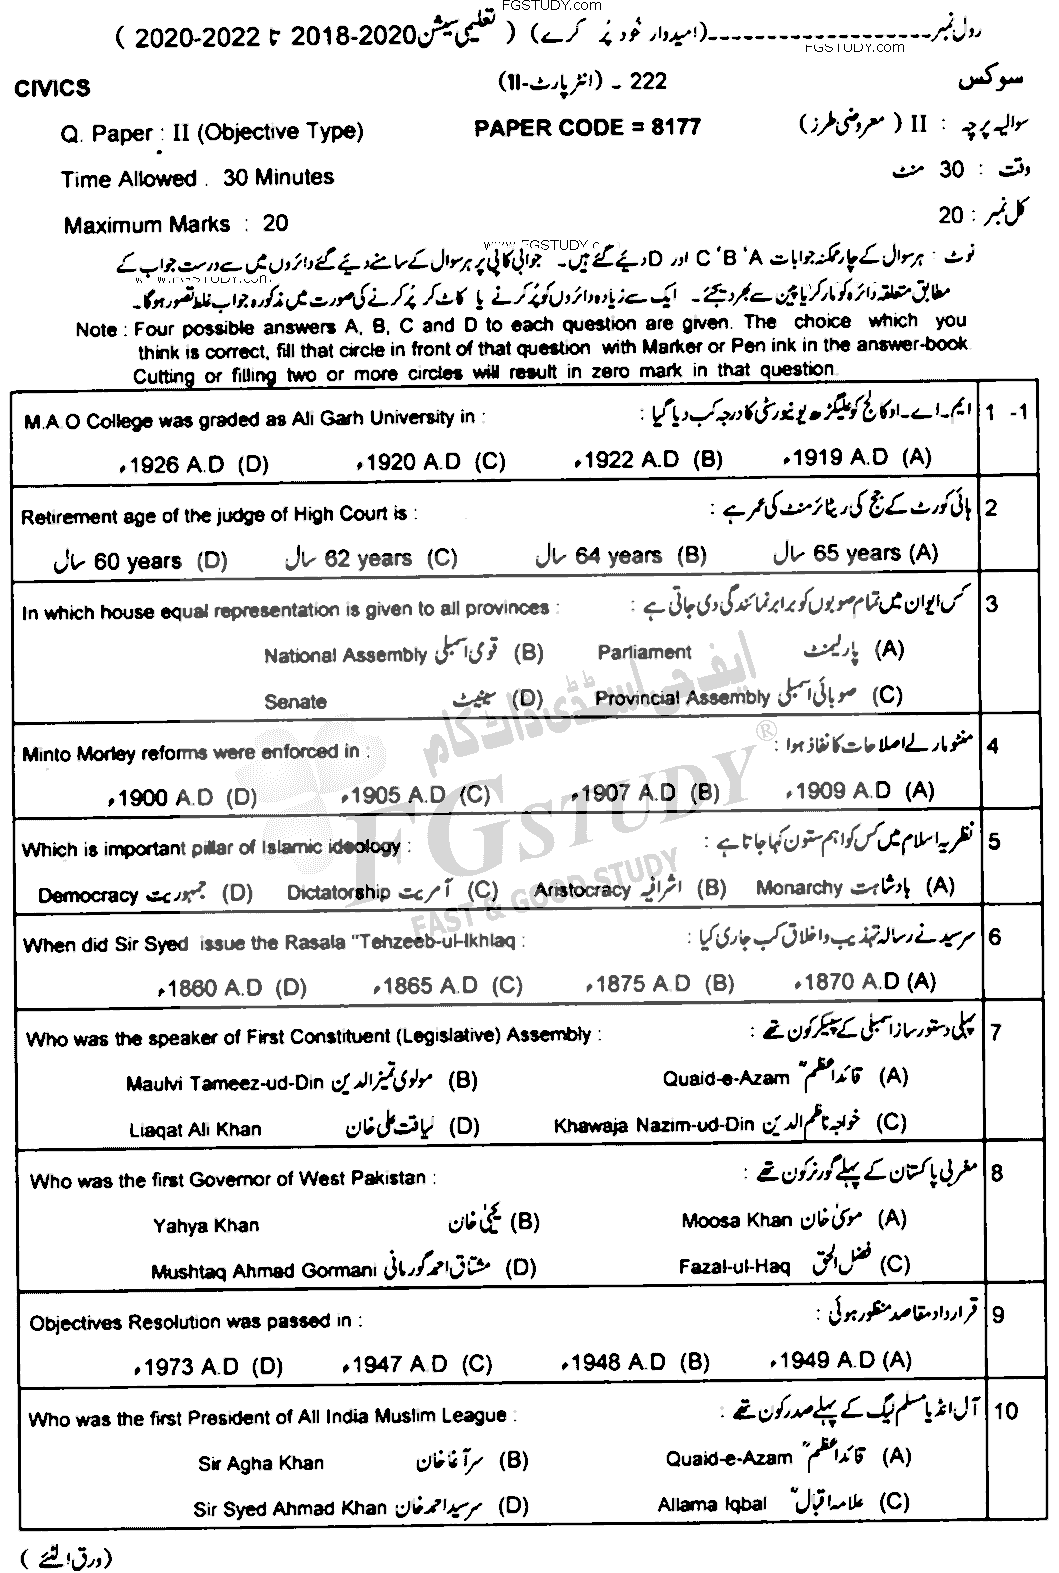 FGSTUDY.COM
رول نمبر۔۔۔۔۔۔۔۔۔۔۔۔۔۔۔۔۔۔۔۔(امیدوار خود پُر کرے) ( تعلیمی سیشن 2018-2020 تا 2022-2020 )
FGSTUDY.COM
CIVICS 222 ۔ (انٹر پارٹ-II) سوکس
Q. Paper : II (Objective Type) PAPER CODE = 8177 سوالیہ پرچہ : II ( معروضی طرز)
Time Allowed . 30 Minutes وقت : 30 منٹ
Maximum Marks : 20 کل نمبر : 20
www.FGSTUDY.c
نوٹ : ہر سوال کے چار ممکنہ جوابات C 'B 'A اور D دیے گئے ہیں۔ جوابی کاپی پر ہر سوال کے سامنے دیے گئے دائروں میں سے درست جواب کے
www.FGSTUDY.com
مطابق متعلقہ دائرہ کو مارکر یا پین سے بھر دیجئے۔ ایک سے زیادہ دائروں کو پُر کرنے یا کاٹ کر پُر کرنے کی صورت میں مذکورہ جواب غلط تصور ہوگا۔
Note : Four possible answers A, B, C and D to each question are given. The choice which you
think is correct, fill that circle in front of that question with Marker or Pen ink in the answer-book
Cutting or filling two or more circles will result in zero mark in that question.
M.A.O College was graded as Ali Garh University in : ایم۔اے۔او کالج کو علیگڑھ یونیورسٹی کا درجہ کب دیا گیا : 1 -1
1926 A.D (D) ء1920 A.D (C) ء1922 A.D (B) ء1919 A.D (A)ء
Retirement age of the judge of High Court is : ہائی کورٹ کے جج کی ریٹائرمنٹ کی عمر ہے : 2
سال 60 years (D) سال 62 years (C) سال 64 years (B) سال 65 years (A)
In which house equal representation is given to all provinces : کس ایوان میں تمام صوبوں کو برابر نمائندگی دی جاتی ہے : 3
National Assembly قومی اسمبلی (B) Parliament پارلیمنٹ (A)
Senate سینیٹ (D) Provincial Assembly صوبائی اسمبلی (C)
Minto Morley reforms were enforced in : منٹو مارلے اصلاحات کا نفاذ ہوا : 4
ء1900 A.D (D) ء1905 A.D (C) ء1907 A.D (B) ء1909 A.D (A)
Which is important pillar of Islamic ideology : نظریہ اسلام میں کس کو اہم ستون کہا جاتا ہے : 5
Democracy جمہوریت (D) Dictatorship آمریت (C) Aristocracy اشرافیہ (B) Monarchy بادشاہت (A)
When did Sir Syed issue the Rasala "Tehzeeb-ul-Ikhlaq : سرسید نے رسالہ تہذیب و اخلاق کب جاری کیا : 6
ء1860 A.D (D) ء1865 A.D (C) ء1875 A.D (B) ء1870 A.D (A)
Who was the speaker of First Constituent (Legislative) Assembly : پہلی دستور ساز اسمبلی کے سپیکر کون تھے : 7
Maulvi Tameez-ud-Din مولوی تمیز الدین (B) Quaid-e-Azam قائداعظمؒ (A)
Liaqat Ali Khan لیاقت علی خان (D) Khawaja Nazim-ud-Din خواجہ ناظم الدین (C)
Who was the first Governor of West Pakistan : مغربی پاکستان کے پہلے گورنر کون تھے : 8
Yahya Khan یحییٰ خان (B) Moosa Khan موسیٰ خان (A)
Mushtaq Ahmad Gormani مشتاق احمد گورمانی (D) Fazal-ul-Haq فضل الحق (C)
Objectives Resolution was passed in : قرارداد مقاصد منظور ہوئی : 9
ء1973 A.D (D) ء1947 A.D (C) ء1948 A.D (B) ء1949 A.D (A)
Who was the first President of All India Muslim League : آل انڈیا مسلم لیگ کے پہلے صدر کون تھے : 10
Sir Agha Khan سر آغا خان (B) Quaid-e-Azam قائداعظمؒ (A)
Sir Syed Ahmad Khan سر سید احمد خان (D) Allama Iqbal علامہ اقبالؒ (C)
(ورق الٹئے)
ایف جی اسٹڈی ڈاٹ کام
FGSTUDY ®
FAST & GOOD STUDY